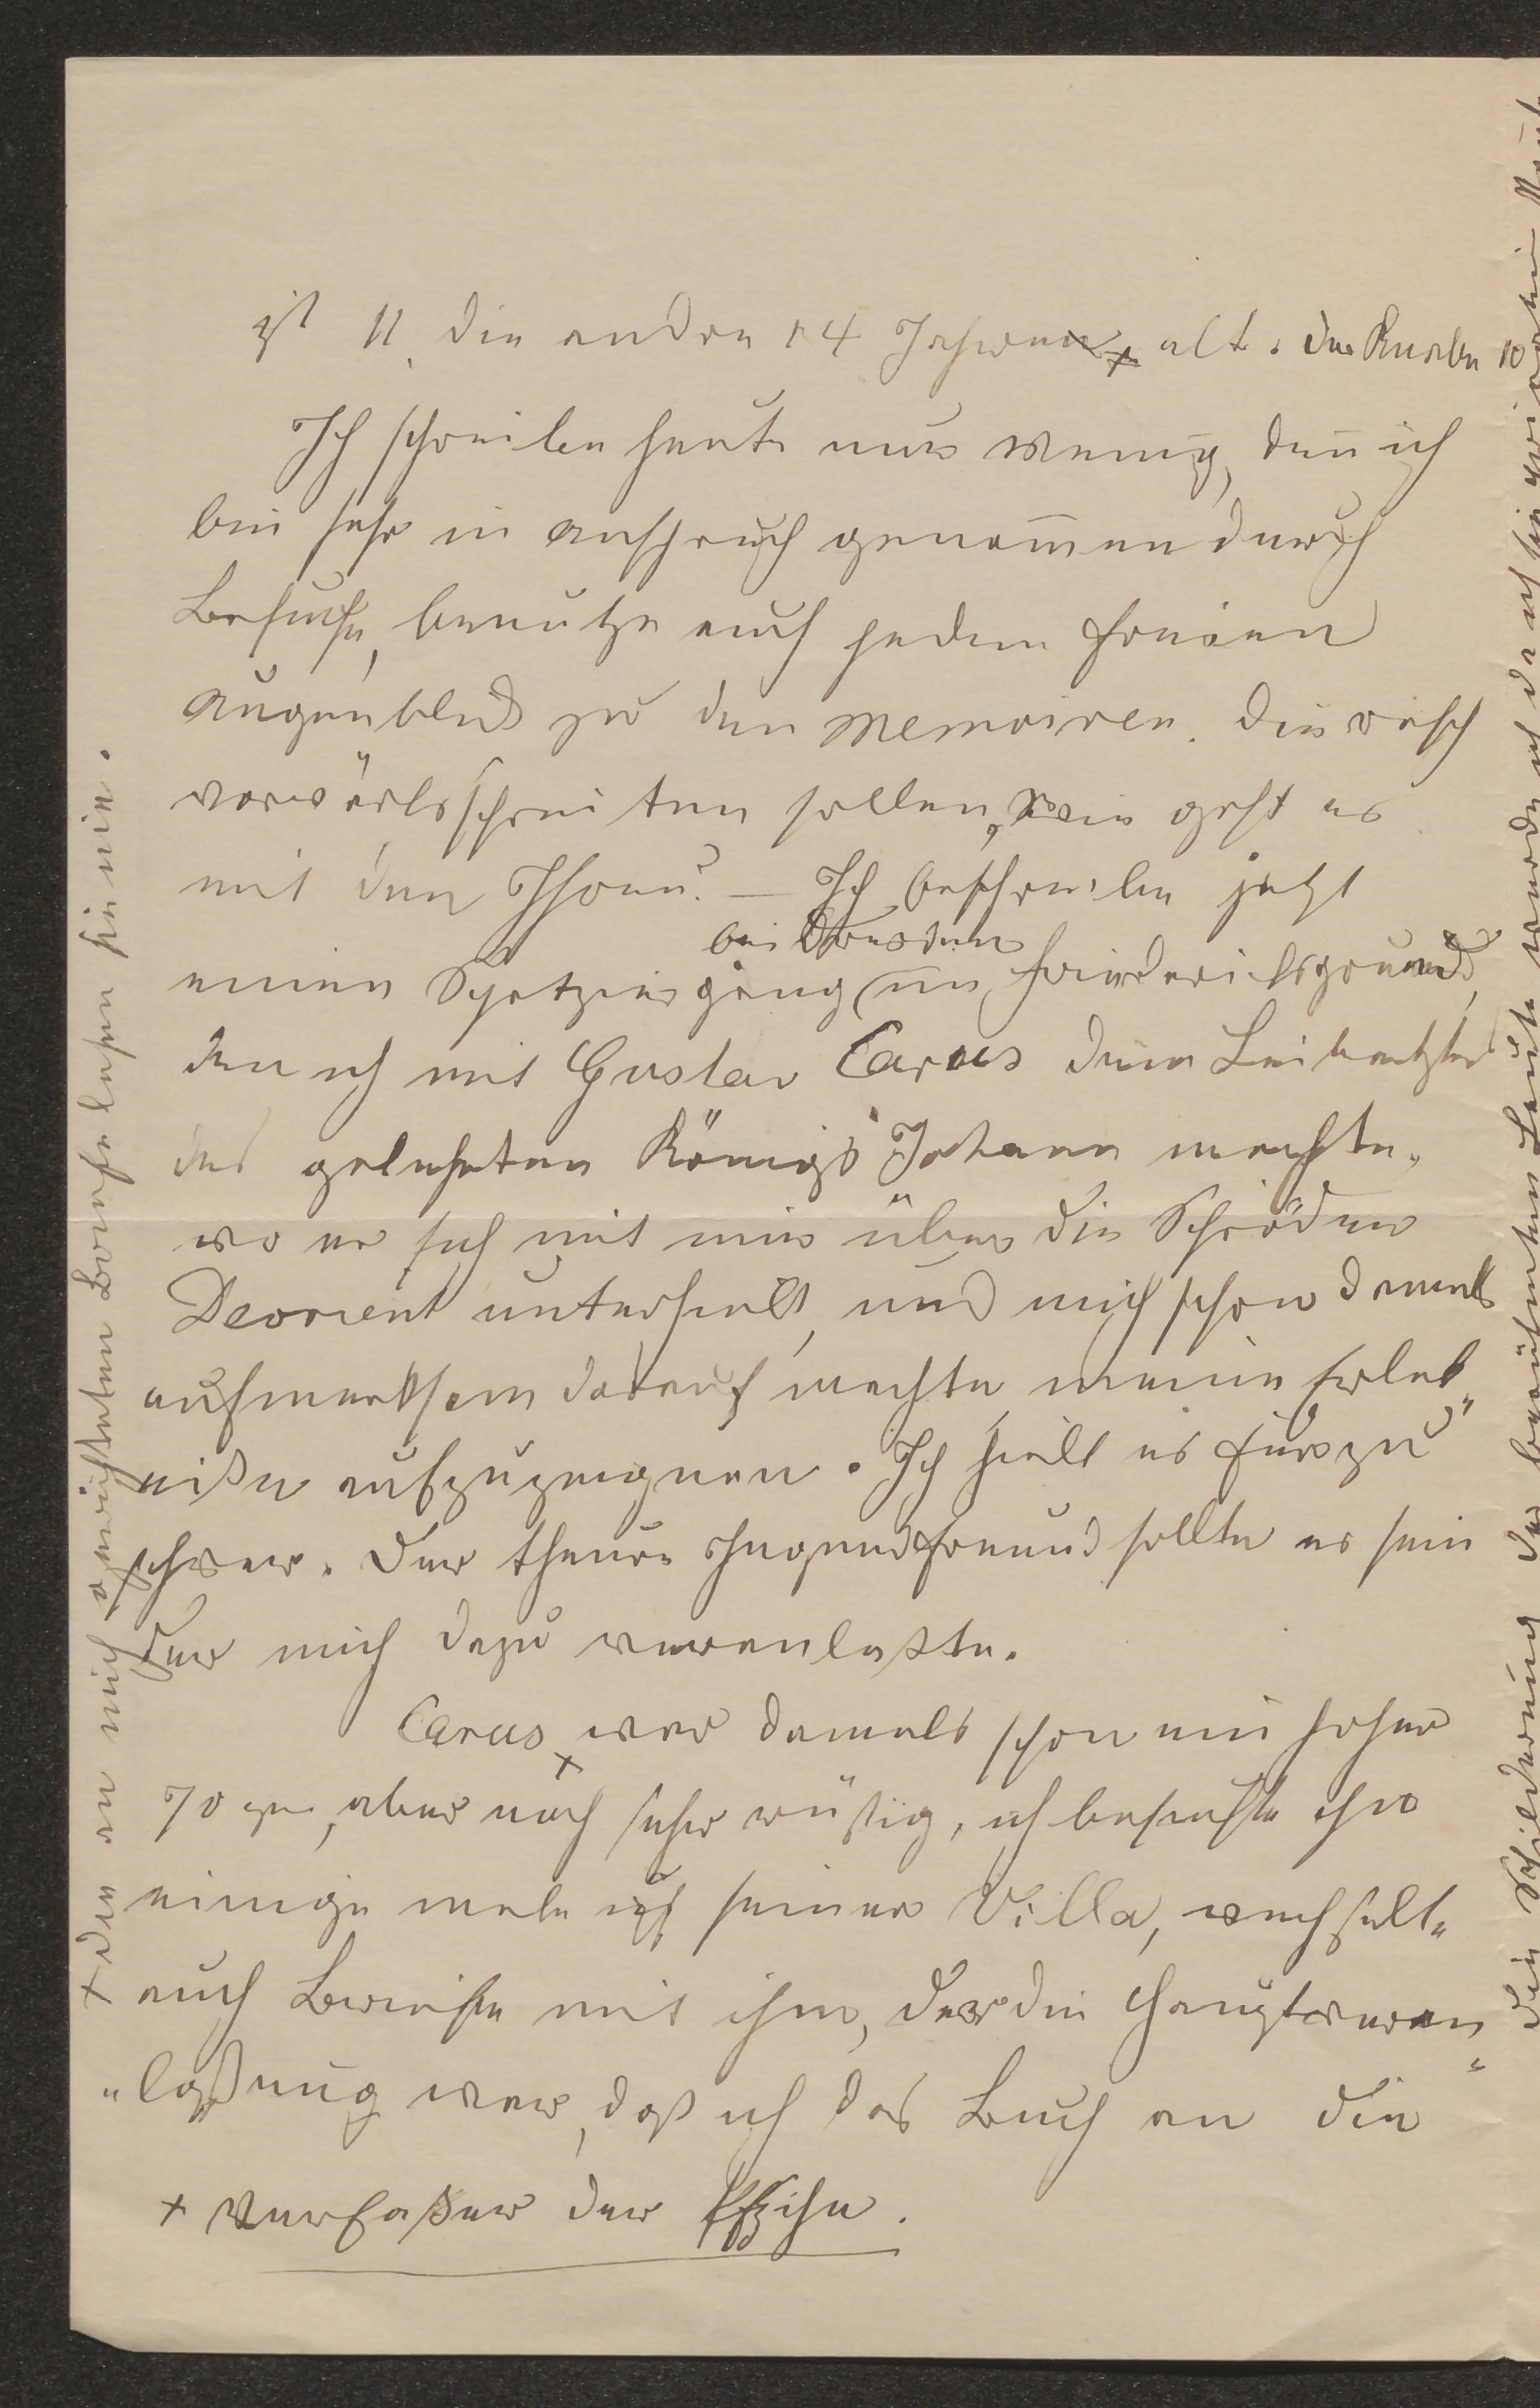 ist 11, die andre 14 Jahre alt. der Knabe 10
Ich schreibe heute nur wenig, den̄ ich
bin sehr in anspruch genom̄en durch
Besuche, benutze auch jeden freien
augenblick zu den Memoiren. die rasch
vorwärtsschreiten sollen, wie geht es
mit den Ihren? – Ich beschreibe jetzt
bei Dresden
einen Spatziergang im Friederichsgrund,
den ich mit Gustav Carus dem Leibartzt
des gelehrten Königs Johann machte,
wo er sich mit mir über die Schröder
Devrient unterhielt, und mich schon damals
aufmerksam darauf machte, meine Erleb„
niße aufzuzeignen. Ich hielt es für zu
schwer. der theure Jugendfreund sollte es sein
der mich dazu veranlaßte.
Carus + war damals schon ein hoher
70 ger, aber noch sehr rüstig, ich besuchte ihn
einige male auf seiner Villa, wechselte
auch Briefe mit ihm, der die Hauptveran„
„laßung war, daß ich das Buch an die
+ Verfaßer der Psÿche.
+ den an mich gerichteten Briefe lasen sie nie.
die Schilderung der berühmten Leute werde ich